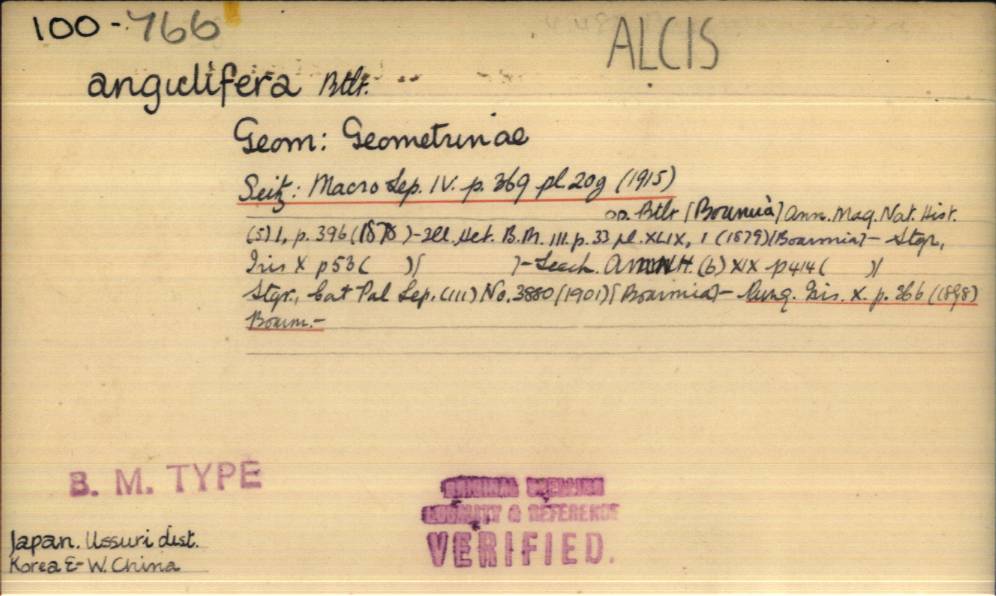 100-766
ALCIS
angulifera Btlr.
Geom: Geometrinae
Seitz: Macro Lep. IV. p. 369 pl. 20g (1915)
op. Btlr [Boarmia] Ann. Mag. Nat. Hist.
(5) 1, p. 396 (1878) - Ill. Het. B.M. III. p. 33 pl. XLIX, 1 (1879) (Boarmia) - Stgr,
Iris X p53 ( )[ ]- Leech. AMNH. (6) XIX p414 ( )[
Stgr., Cat Pal Lep. (III) No. 3880 (1901) [Boarmia] - Pung. Iris. X. p. 366 (1898)
Boarm.-
B. M. TYPE
ORIGINAL SPELLING
LOCALITY & REFERENCE
VERIFIED.
Japan. Ussuri dist.
Korea & W. China